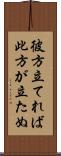 彼方立てれば
此方が立たぬ